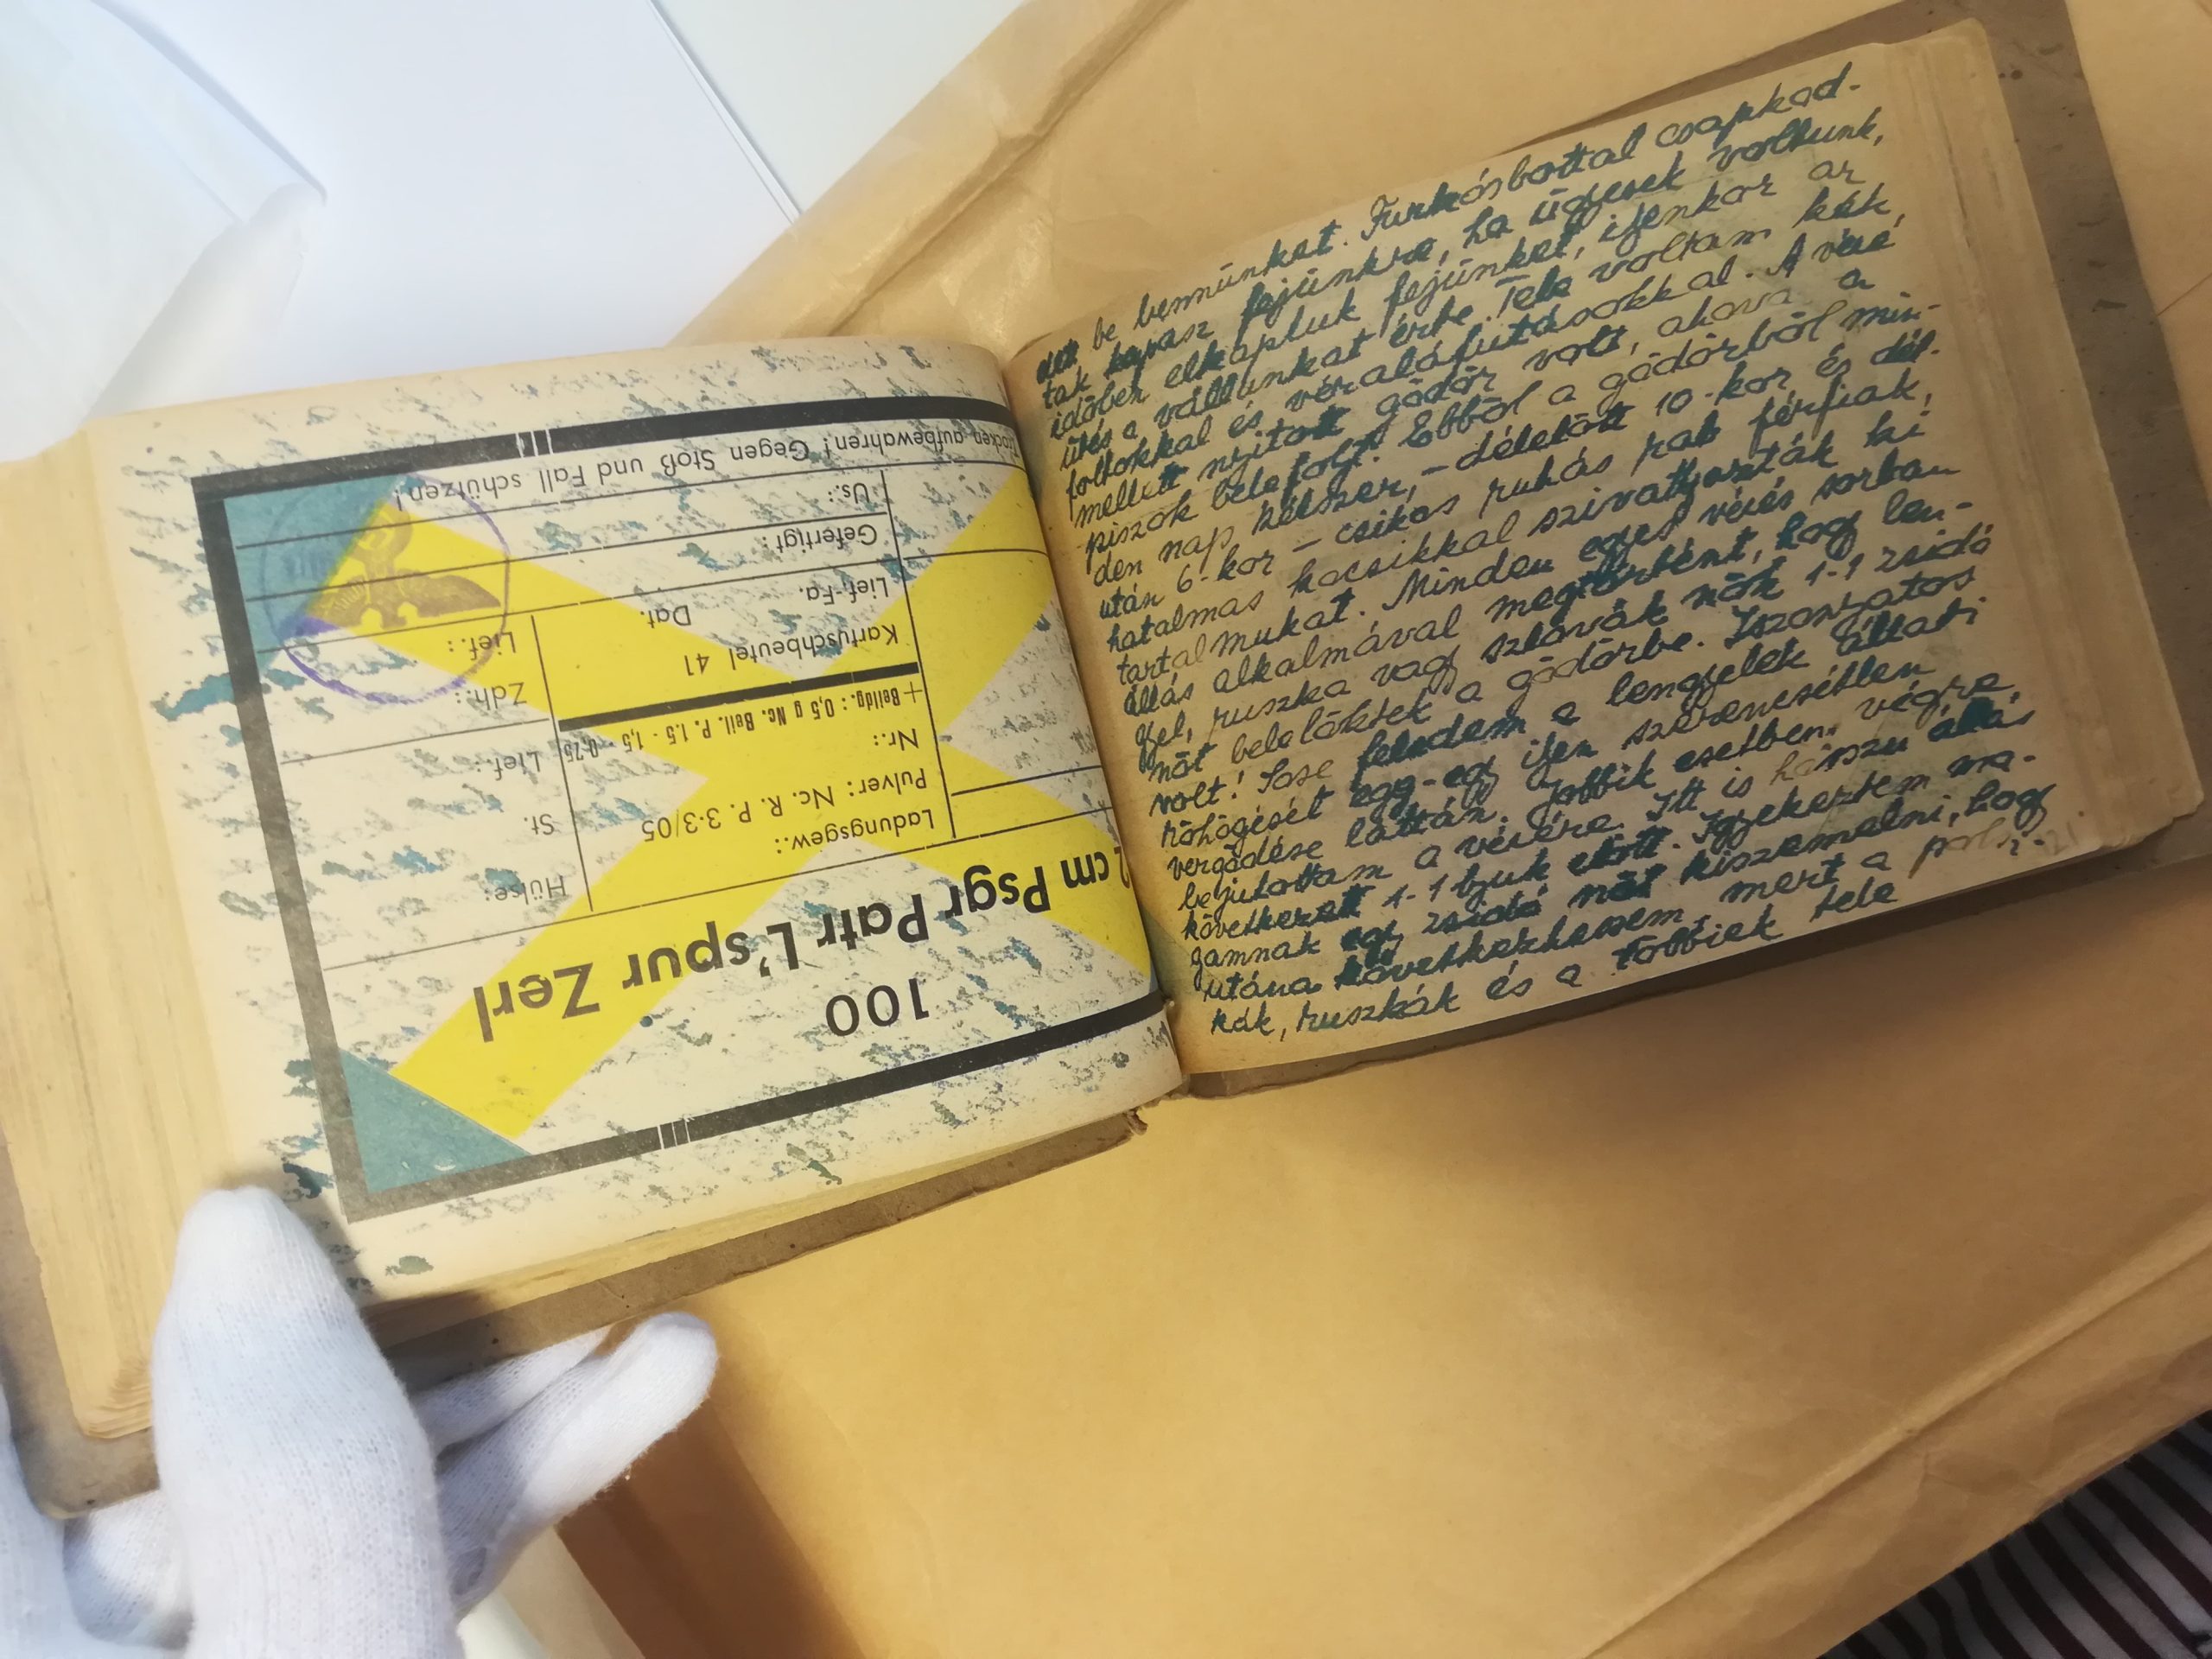 Trocken aufbewahren! Gegen Stoß und Fall schützen!
Us.:
Gefertigt:
Lief.-Fa.
Dat.
Lief.:
Kartuschbeutel 41
Zdh.:
+ Beildg.: 0,5 g Nc. Beil. P. 1.5 - 1,5 · 0,75
Lief.:
Nr.:
Pulver: Nc. R. P. 3·3/05
St.
Ladungsgew.:
Hülse:
2 cm Psgr Patr L'spur Zerl
100
be bennünket. Furkósbottal csapkod-
tak kopasz fejünkre, ha ügyesek voltunk,
időben elkaptuk fejünket, ilyenkor az
ütés a vállunkat érte. Tele voltam kék,
foltokkal és véraláfutásokkal. A vécé
mellett nyitott gödör volt, ahova a
piszok belefolyt. Ebből a gödörből min-
den nap kétszer, - délelőtt 10-kor és dél-
után 6-kor - csikos ruhás rab férfiak,
hatalmas kocsikkal szivattyozták ki
tartalmukat. Minden egyes vécés sorban
állás alkalmával megtörtént, hogy len-
gyel, ruszka vagy szlovák nők 1-1 zsidó
nőt belelöktek a gödörbe. Iszonyatos
volt! Sose feledem a lengyelek állati
röhögését egy-egy ilyen szerencsétlen
vergődése láttán. Jobbik esetben, végre,
bejutottam a vécére. Itt is hosszu állás
következett 1-1 lyuk előtt. Igyekeztem ma-
gamnak egy zsidó nőt kiszemelni, hogy
utána következhessem, mert a poli-
kák, ruszkák és a többiek tele